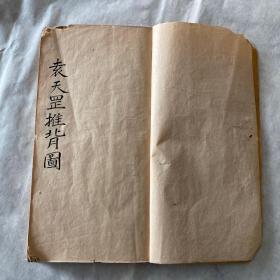 袁天罡推背圖